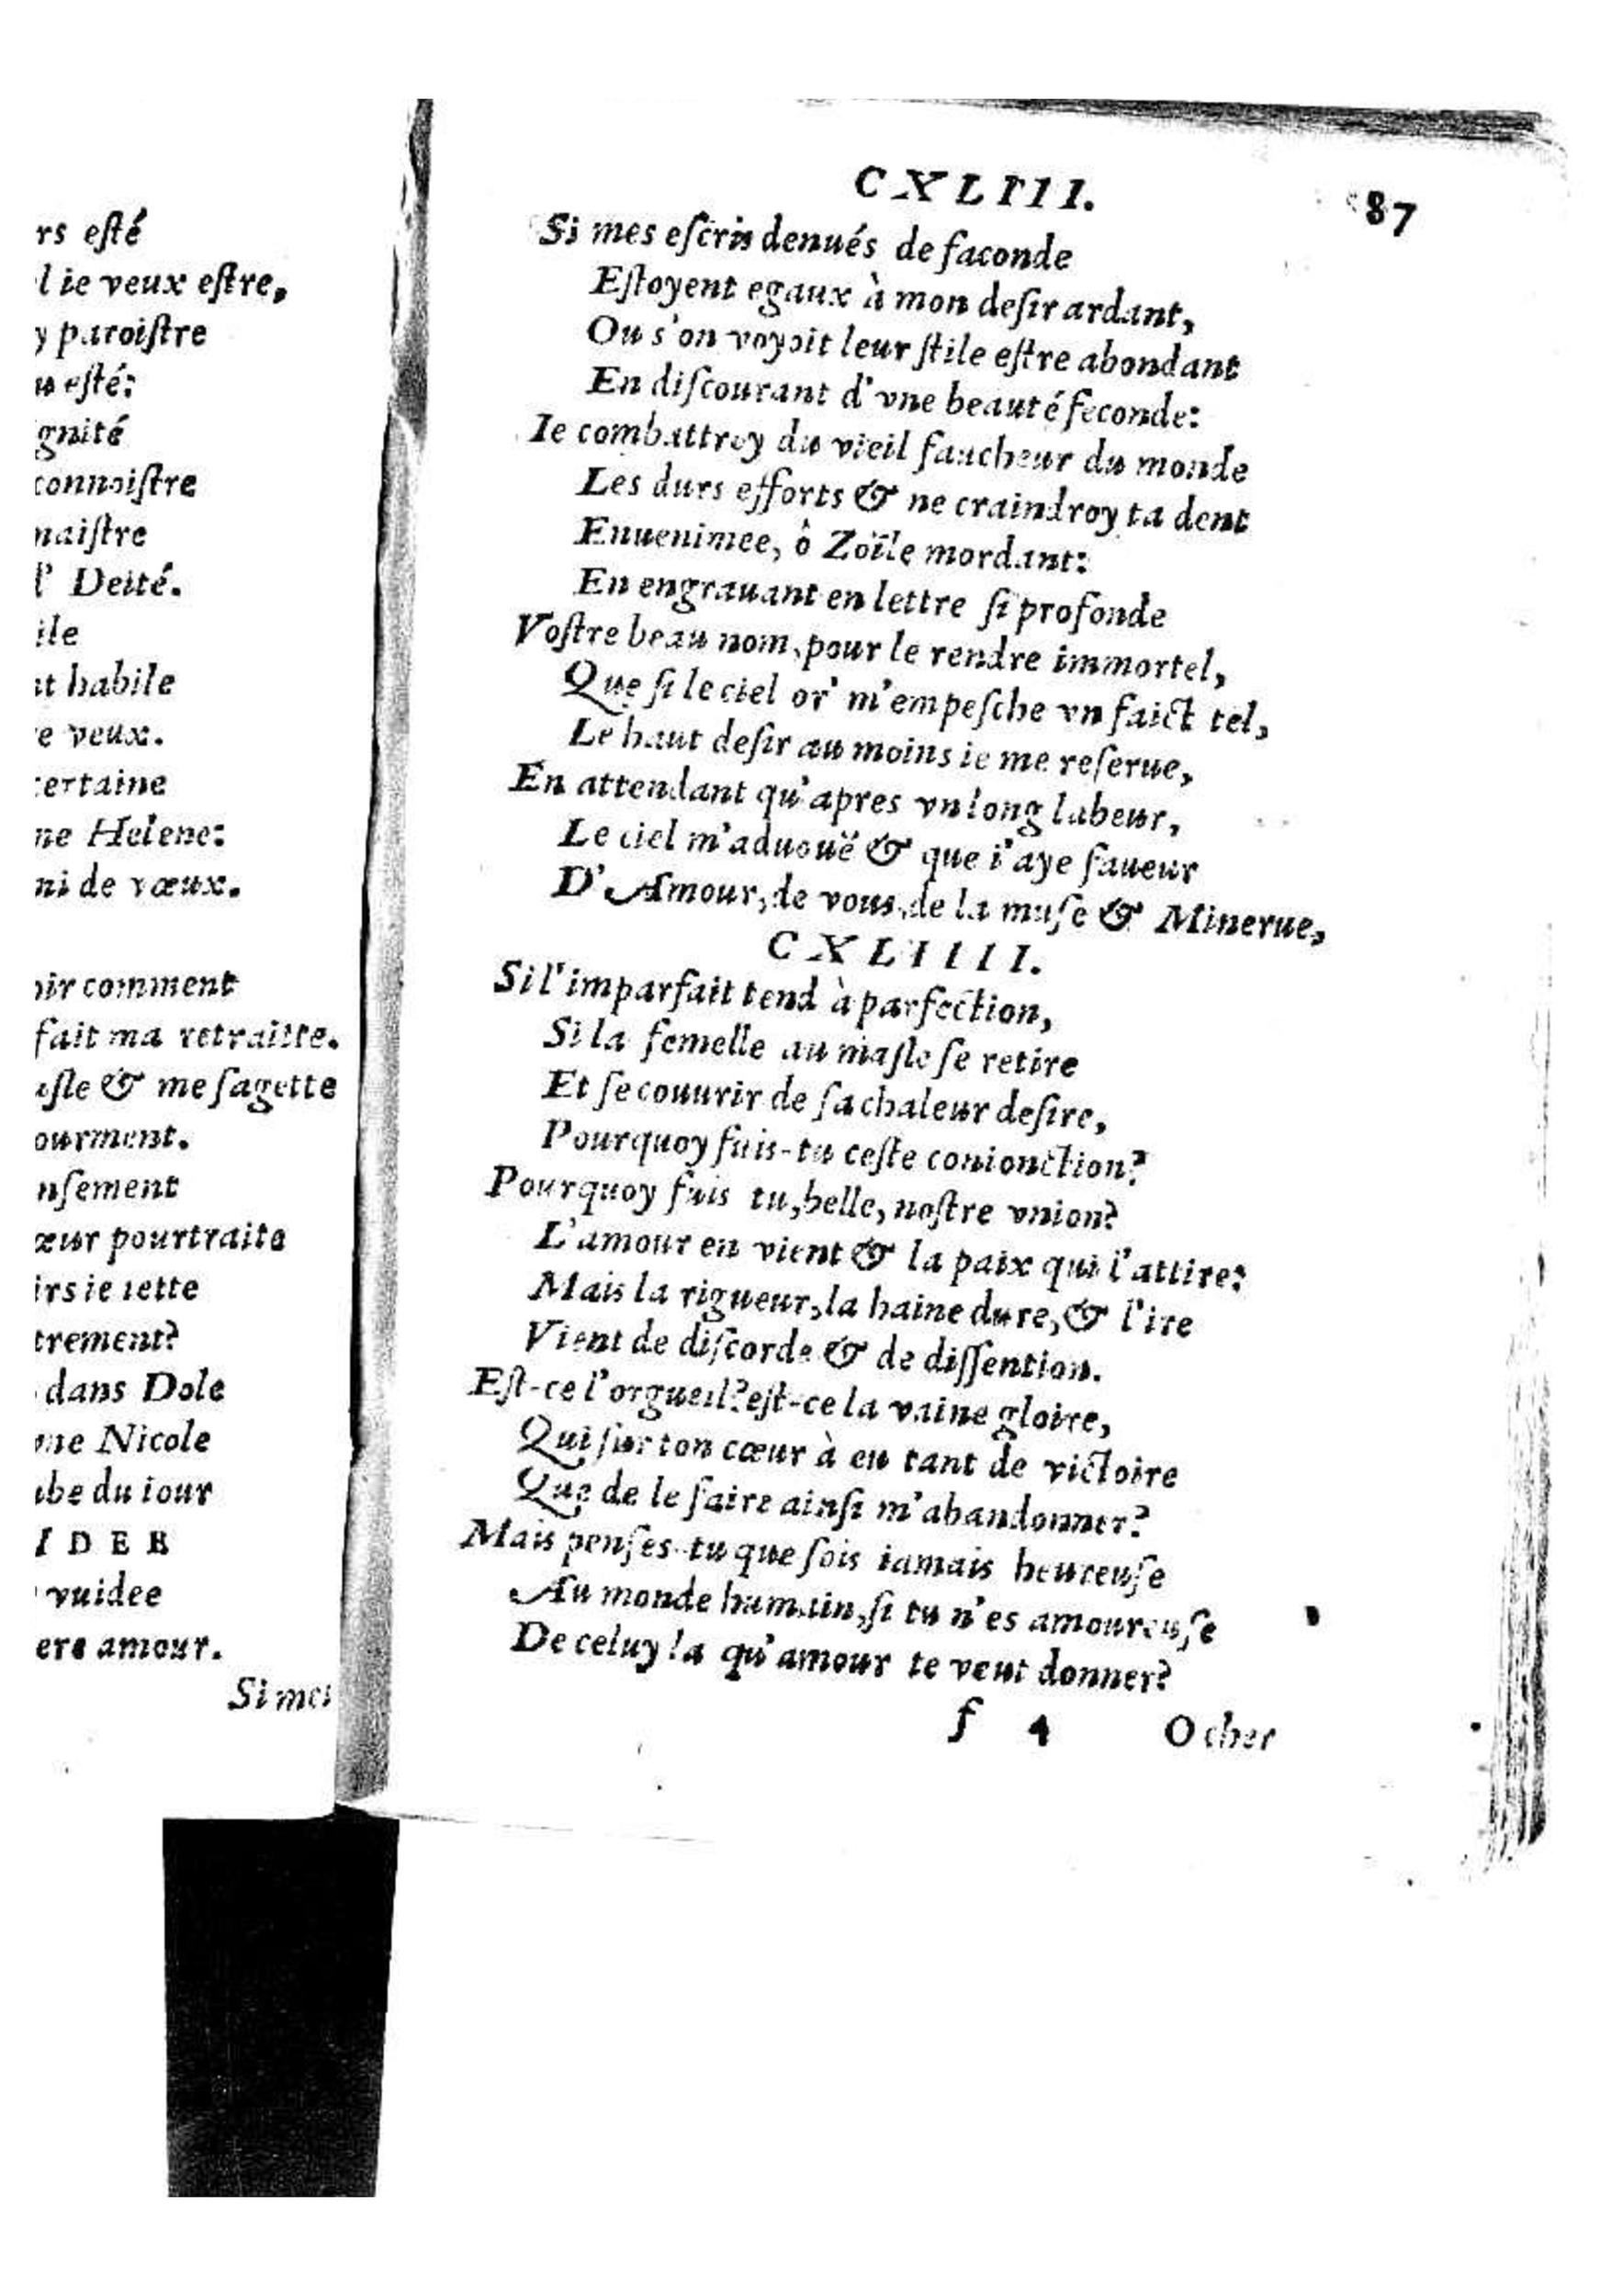 rs eſté
l ie veux eſtre,
y paroiſtre
eſté:
gnité
connoiſtre
maiſtre
l' Deité.
ile
habile
veux.
certaine
ne Helene:
ni de vœux.
oir comment
fait ma retraitte.
aſle & me ſagette
ourment.
nſement
œur pourtraite
irs ie iette
trement?
dans Dole
une Nicole
ube du iour
I D E E
vuidee
ere amour.
Si mes
CXLIII.
87
Si mes eſcris denués de faconde
Eſtoyent egaux à mon deſir ardant,
Ou s'on voyoit leur ſtile eſtre abondant
En diſcourant d'vne beauté feconde:
Ie combattroy du vieil faucheur du monde
Les durs efforts & ne craindroy ta dent
Enuenimee, ô Zoïle mordant:
En engrauant en lettre ſi profonde
Voſtre beau nom, pour le rendre immortel,
Que ſi le ciel or' m'empeſche vn faict tel,
Le haut deſir au moins ie me reſerue,
En attendant qu'apres vn long labeur,
Le ciel m'aduouë & que i'aye faueur
D'Amour, de vous, de la muſe & Minerue,
CXLIIII.
Si l'imparfait tend à parfection,
Si la femelle au maſle ſe retire
Et ſe couurir de ſa chaleur deſire,
Pourquoy fuis-tu ceſte conionction?
Pourquoy fuis tu, belle, noſtre vnion?
L'amour en vient & la paix qui l'attire:
Mais la rigueur, la haine dure, & l'ire
Vient de diſcorde & de diſſention.
Eſt-ce l'orgueil? eſt-ce la vaine gloire,
Qui ſur ton cœur à eu tant de victoire
Que de le faire ainſi m'abandonner?
Mais penſes-tu que ſois iamais heureuſe
Au monde humain, ſi tu n'es amoureuſe
De celuy la qu'amour te veut donner?
f 4 O cher